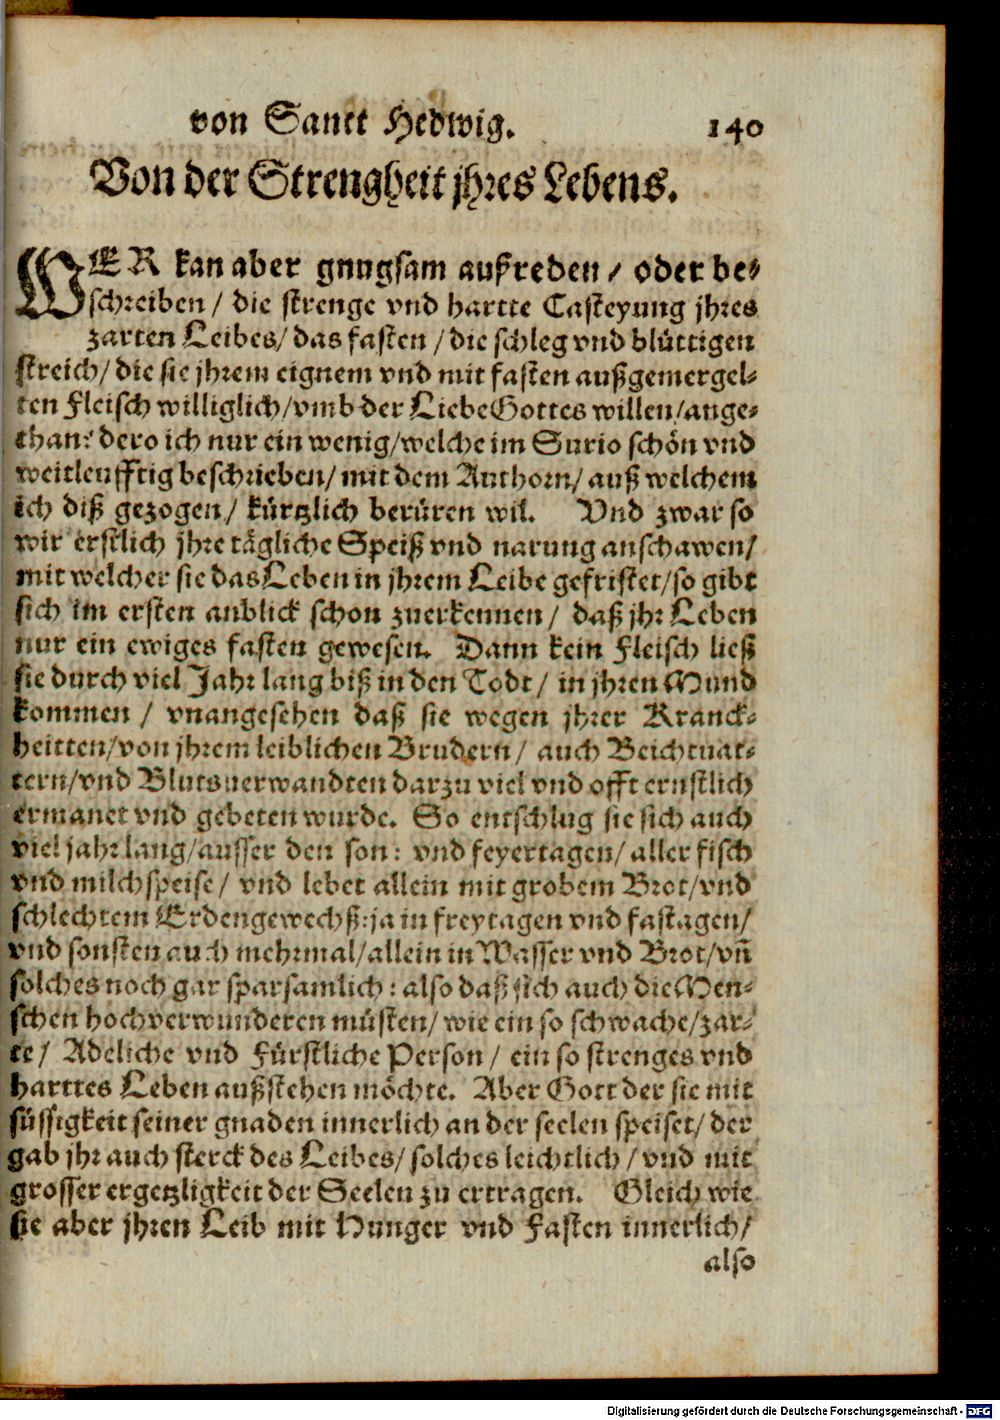 von Sanct Hedwig. 140
Von der Strengheit jhres Lebens.
WER kan aber gnugsam außreden / oder be-
schreiben / die strenge vnd hartte Casteyung jhres
zarten Leibes/ das fasten / die schleg vnd blüttigen
streich/ die sie jhrem eignem vnd mit fasten außgemergel-
ten Fleisch williglich/vmb der Liebe Gottes willen/ange-
than? dero ich nur ein wenig/welche im Surio schön vnd
weitleufftig beschrieben/ mit dem Authorn/ auß welchem
ich diß gezogen/ kürtzlich berüren wil. Vnd zwar so
wir erstlich jhre tägliche Speiß vnd narung anschawen/
mit welcher sie das Leben in jhrem Leibe gefristet/so gibt
sich im ersten anblick schon zuerkennen/ daß jhr Leben
nur ein ewiges fasten gewesen. Dann kein Fleisch ließ
sie durch viel Jahr lang biß in den Todt/ in jhren Mund
kommen / vnangesehen daß sie wegen jhrer Kranck-
heitten/von jhrem leiblichen Brudern/ auch Beichtuat-
tern/vnd Blutsuerwandten darzu viel vnd offt ernstlich
ermanet vnd gebeten wurde. So entschlug sie sich auch
viel jahr lang/ausser den son: vnd feyertagen/ aller fisch
vnd milchspeise/ vnd lebet allein mit grobem Brot/vnd
schlechtem Erdengewechß: ja in freytagen vnd fastagen/
vnd sonsten auch mehrmal/allein in Wasser vnd Brot/vñ
solches noch gar sparsamlich: also daß sich auch die Men-
schen hochverwunderen müsten/ wie ein so schwache/zar-
te/ Adeliche vnd Fürstliche Person / ein so strenges vnd
harttes Leben außstehen möchte. Aber Gott der sie mit
süssigkeit seiner gnaden innerlich an der seelen speiset/ der
gab jhr auch sterck des Leibes/ solches leichtlich / vnd mit
grosser ergetzligkeit der Seelen zu ertragen. Gleich wie
sie aber jhren Leib mit Hunger vnd Fasten innerlich/
also
Digitalisierung gefördert durch die Deutsche Forschungsgemeinschaft - DFG